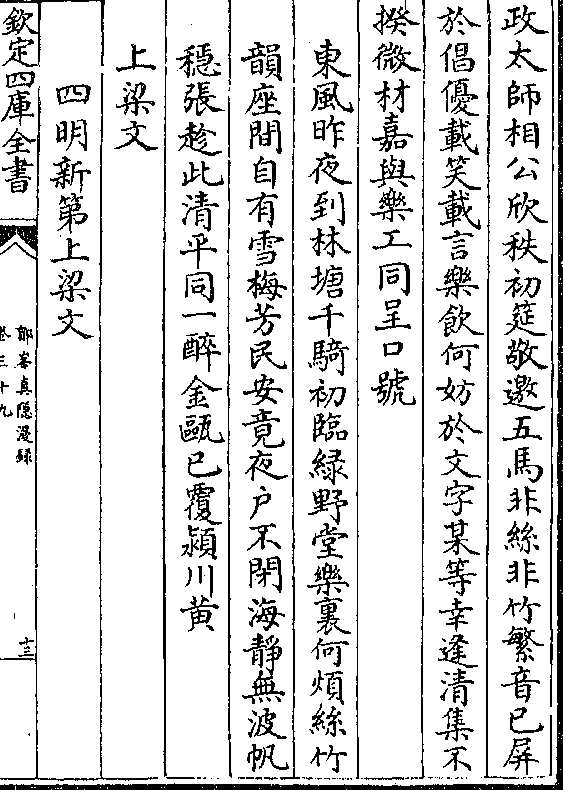 政太師相公欣秩初筵敬邀五馬非絲非竹繁音已屏
於倡優載笑載言樂飲何妨於文字某等幸逢清集不
揆微材嘉與樂工同呈口號
東風昨夜到林塘千騎初臨緑野堂樂裏何煩絲竹
韻座間自有雪梅芳民安竟夜户不閉海靜無波帆
穏張趁此清平同一醉金甌已覆潁川黄
上梁文
四明新第上梁文
欽定四庫全書
鄮峯真隱漫録
卷三十九
十三